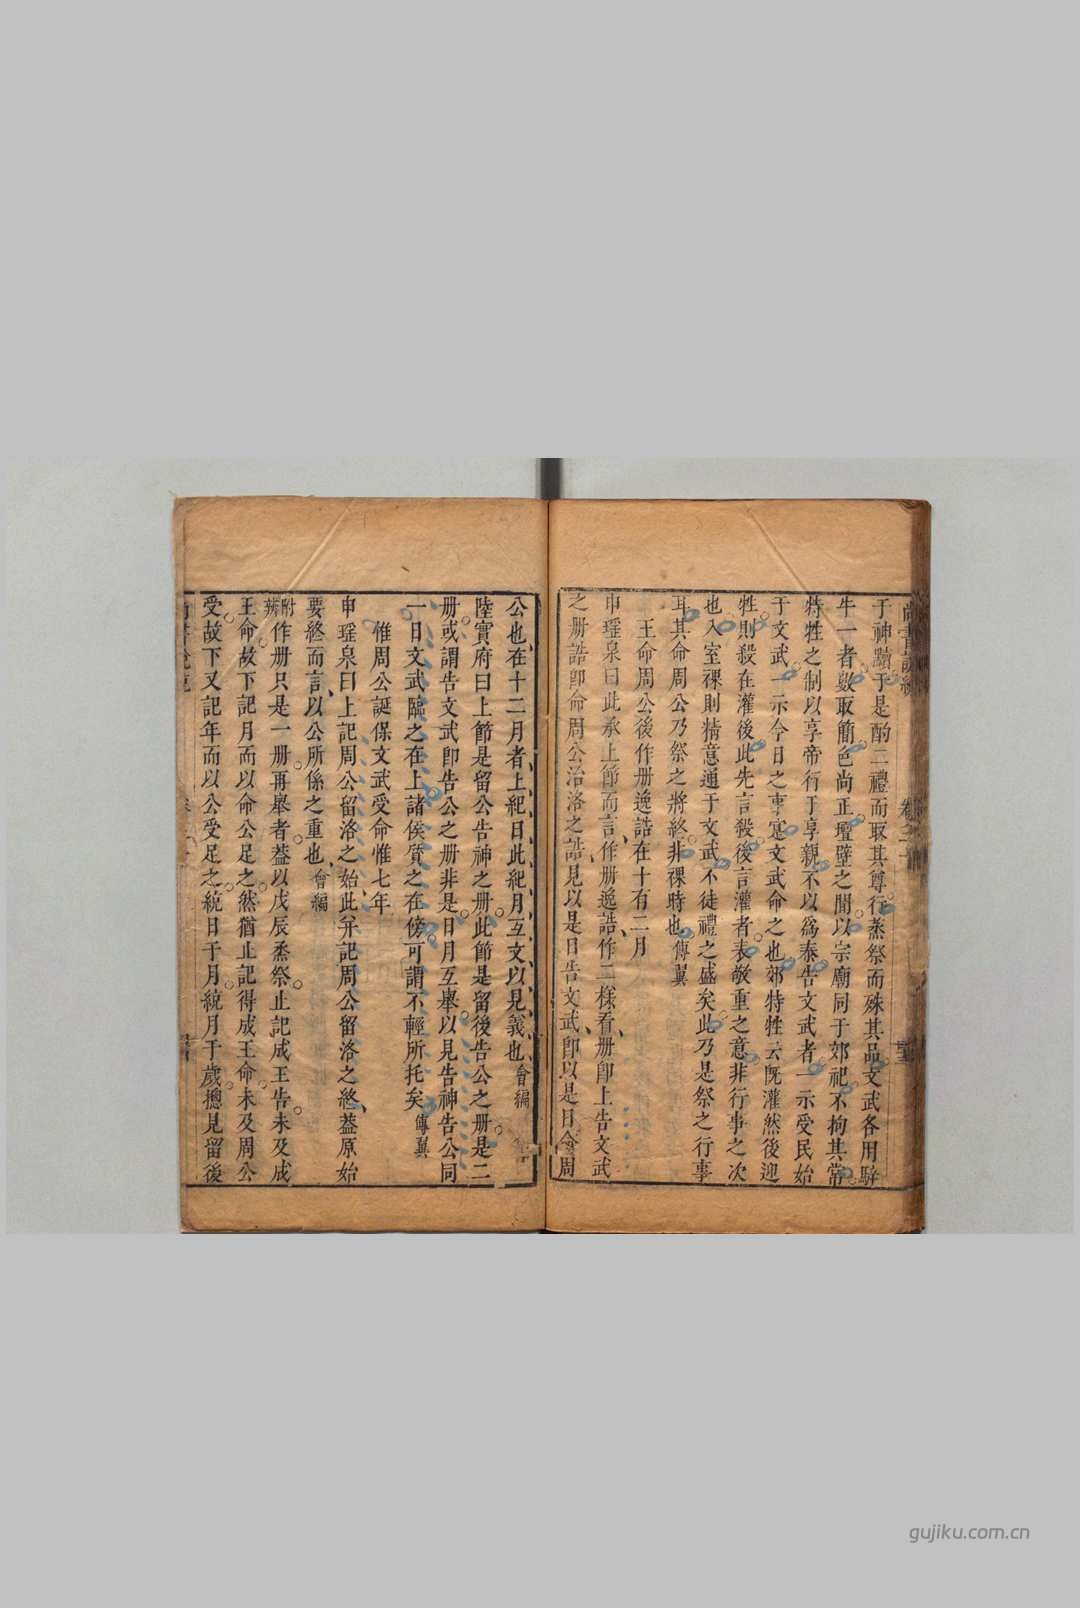 于神黷于是酌二禮而取其尊行烝祭而殊其品文武各用騂
牛一者數取簡色尚正壇壁之間以宗廟同于郊祀不拘其常
特牲之制以享帝行于享親不以為泰告文武者一示受民始
于文武一示今日之事寔文武命之也郊特牲云既灌然後迎
牲則殺在灌後此先言殺後言灌者表敬重之意非行事之次
也入室祼則精意通于文武不徒禮之盛矣此乃是祭之行事
耳其命周公乃祭之將終非祼時也傳翼
王命周公後作册逸誥在十有二月
申瑶泉曰此承上節而言作册逸誥作二様看册卽上告文武
之册誥卽命周公治洛之誥見以是日告文武卽以是日命周
公也在十二月者上紀日此紀月互文以見義也會編
陸實府曰上節是留公告神之册此節是留後告公之册是二
册或謂告文武卽告公之册非是日月互舉以見告神告公同
一日文武臨之在上諸侯質之在傍可謂不輕所托矣傳翼
惟周公誕保文武受命惟七年
申瑶泉曰上記周公留洛之始此并記周公留洛之終葢原始
要終而言以公所係之重也會編
附辨作册只是一册再舉者葢以戊辰烝祭止記成王告未及成
王命故下記月而以命公足之然猶止記得成王命未及周公
受故下又記年而以公受足之統日于月統月于歲摠見留後
卷之十
gujiku.com.cn